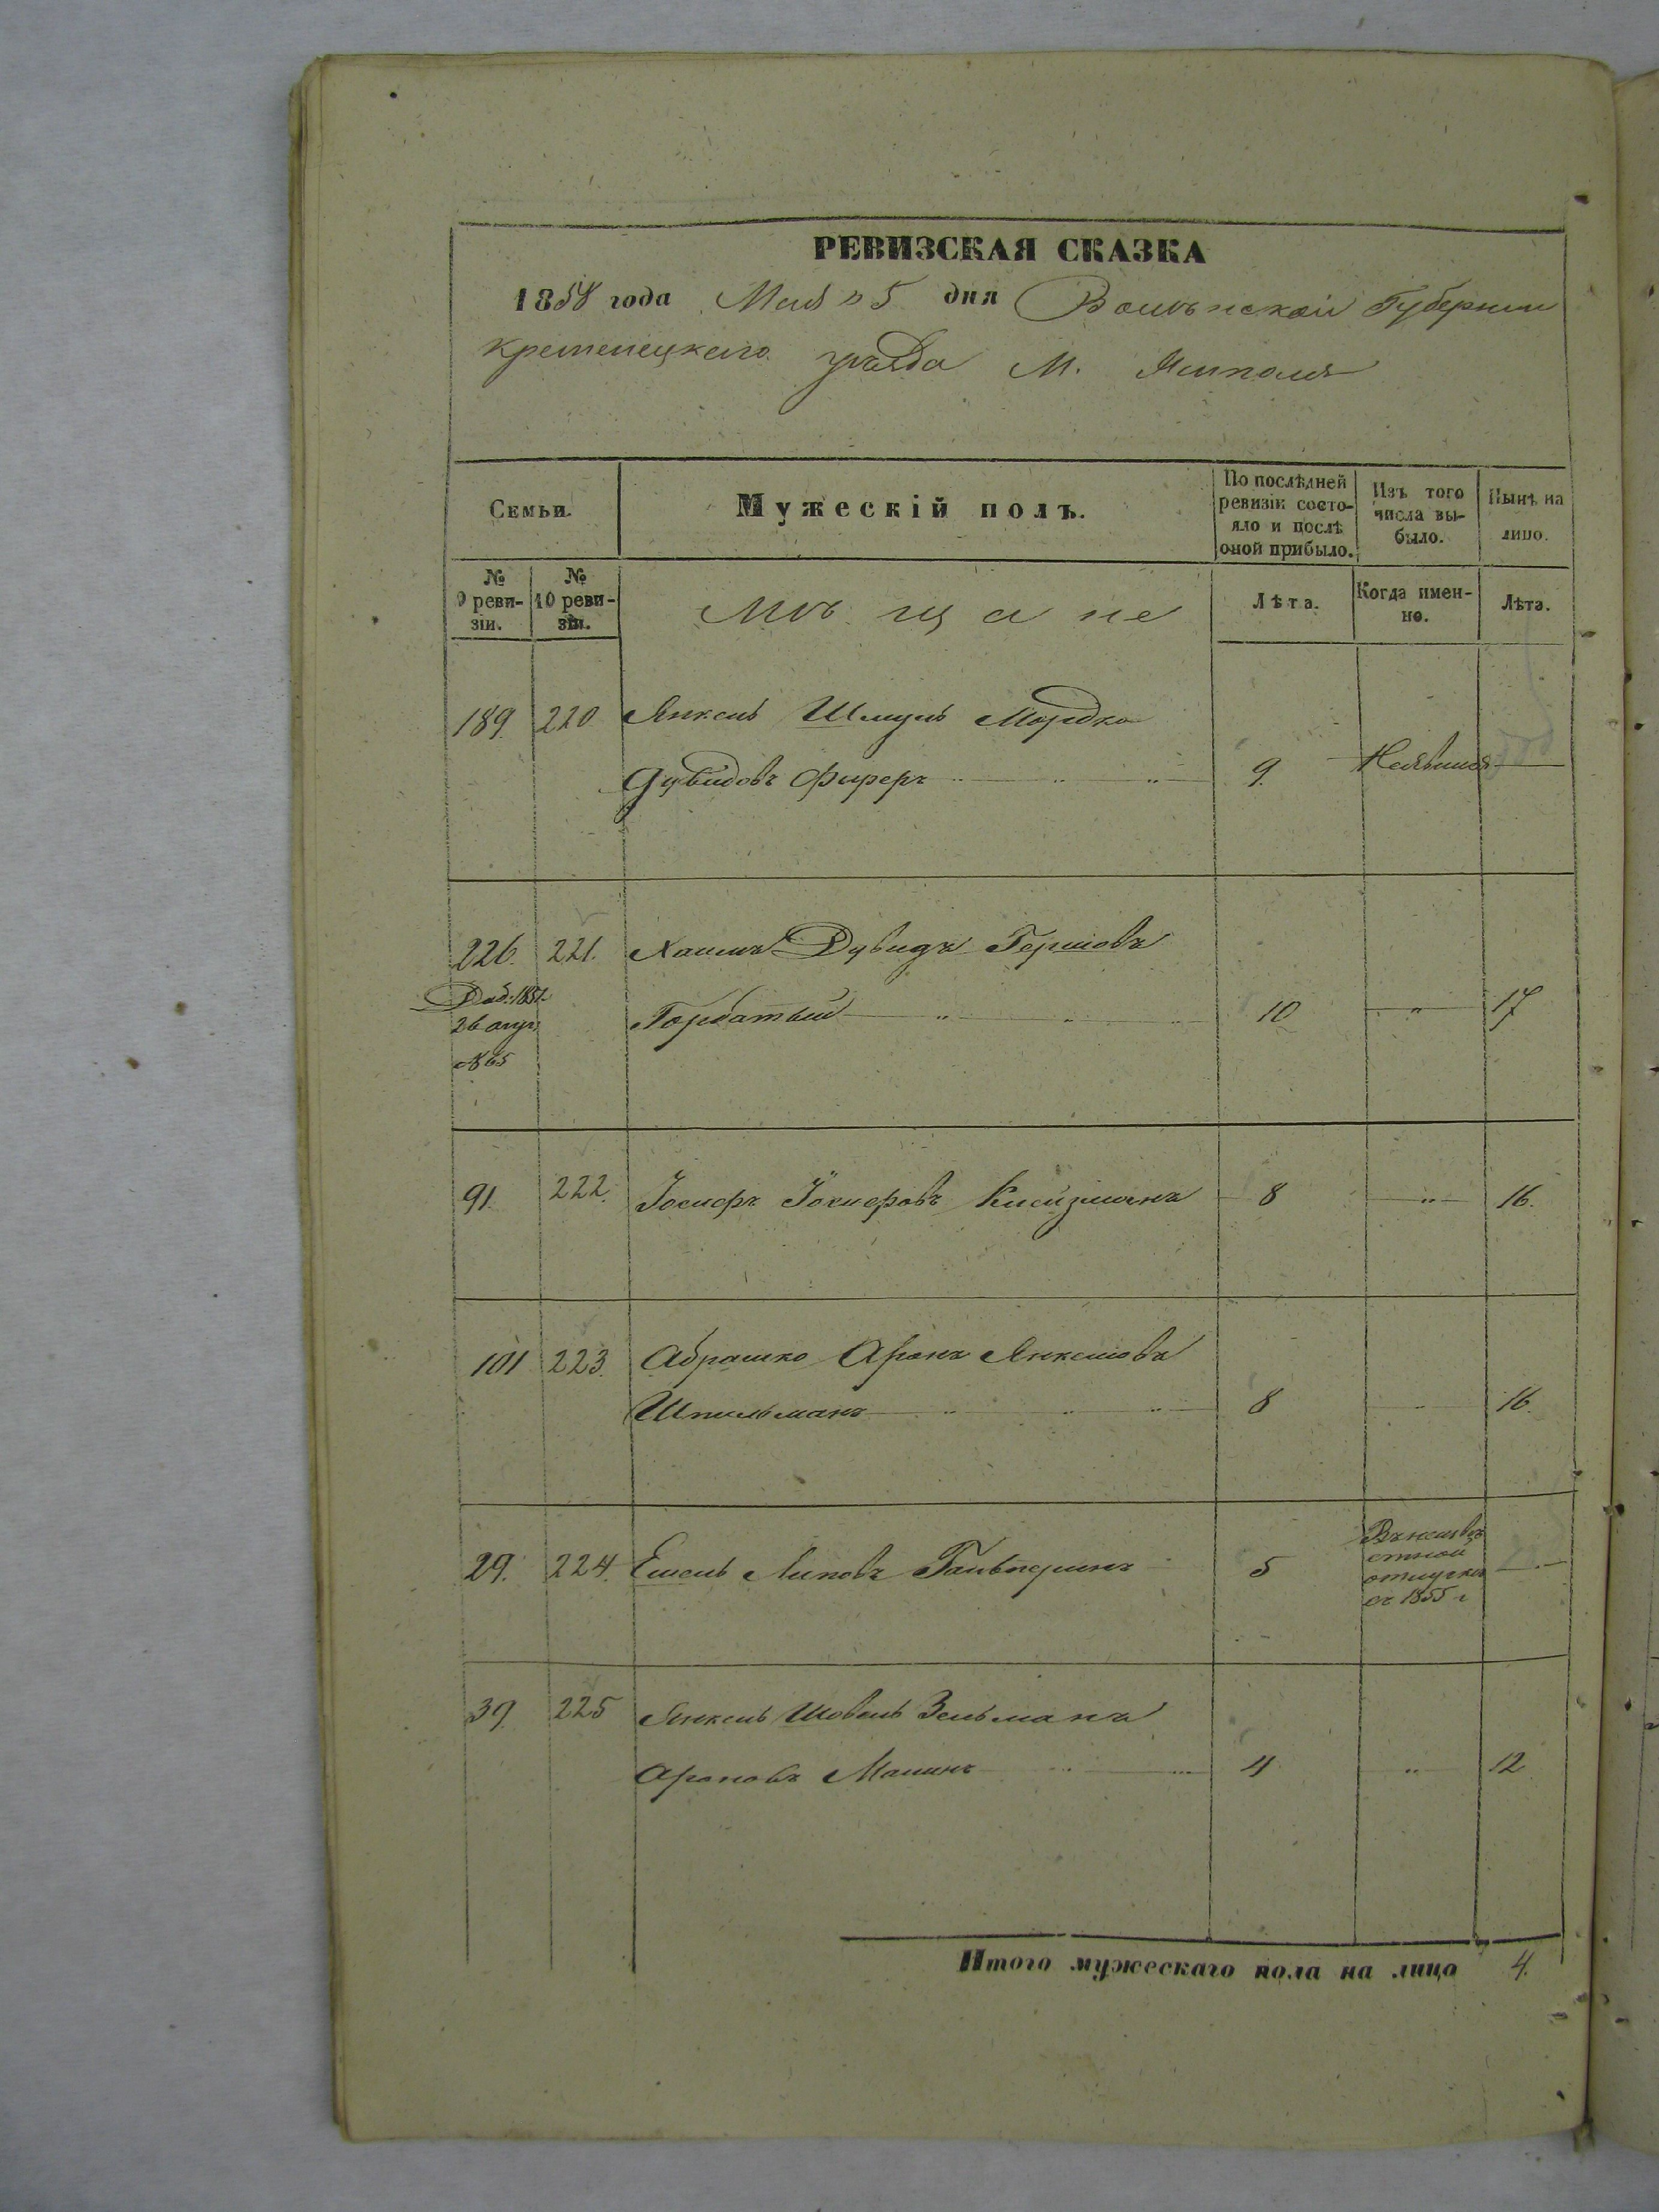 РЕВИЗСКАЯ СКАЗКА
1858 года Мая 5 дня Волынской Губернии
Кременецкаго уѣзда М. Ямполя
Семьи.
Мужескій полъ.
По послѣдней ревизіи состояло и послѣ оной прибыло.
Изъ того числа выбыло.
Нынѣ на лицо.
№ 9 ревизіи.
№ 10 ревизіи.
Мѣщане
Лѣта.
Когда именно.
Лѣта.
189. 220 Янкель Шмуль Мордко
Дувидовъ Фиреръ 9. Неявился
226. 221. Хаимъ Дувидъ Гершовъ
Доб: 1851.
26 авгу.
№ 65
Горбатый 10 17
91. 222. Іосифъ Іосифовъ 8 16.
101 223. Абрашко Аронъ Янкелiовъ
Шпильманъ 8 16.
29. 224. Ешель Липовъ Гальперинъ 5
Въ неизвѣстной отлучкѣ съ 1855 г
39. 225 Янкель Шовель Зельманъ
Ароновъ Манинъ 4 12
Итого мужескаго пола на лицо 4.